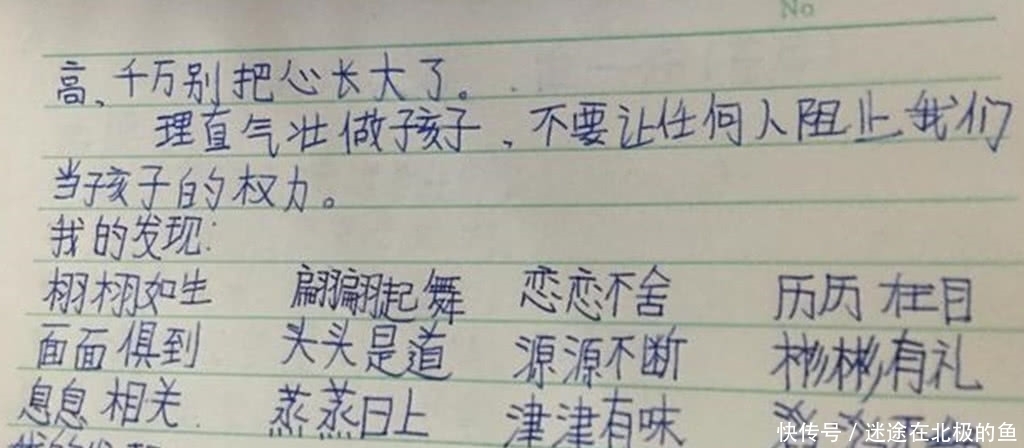 No
高、千万别把心长大了。
理直气壮做孩子，不要让任何人阻止我们
当孩子的权力。
我的发现：
栩栩如生 翩翩起舞 恋恋不舍 历历在目
面面俱到 头头是道 源源不断 彬彬有礼
息息相关 蒸蒸日上 津津有味
快传号 / 迷途在北极的鱼